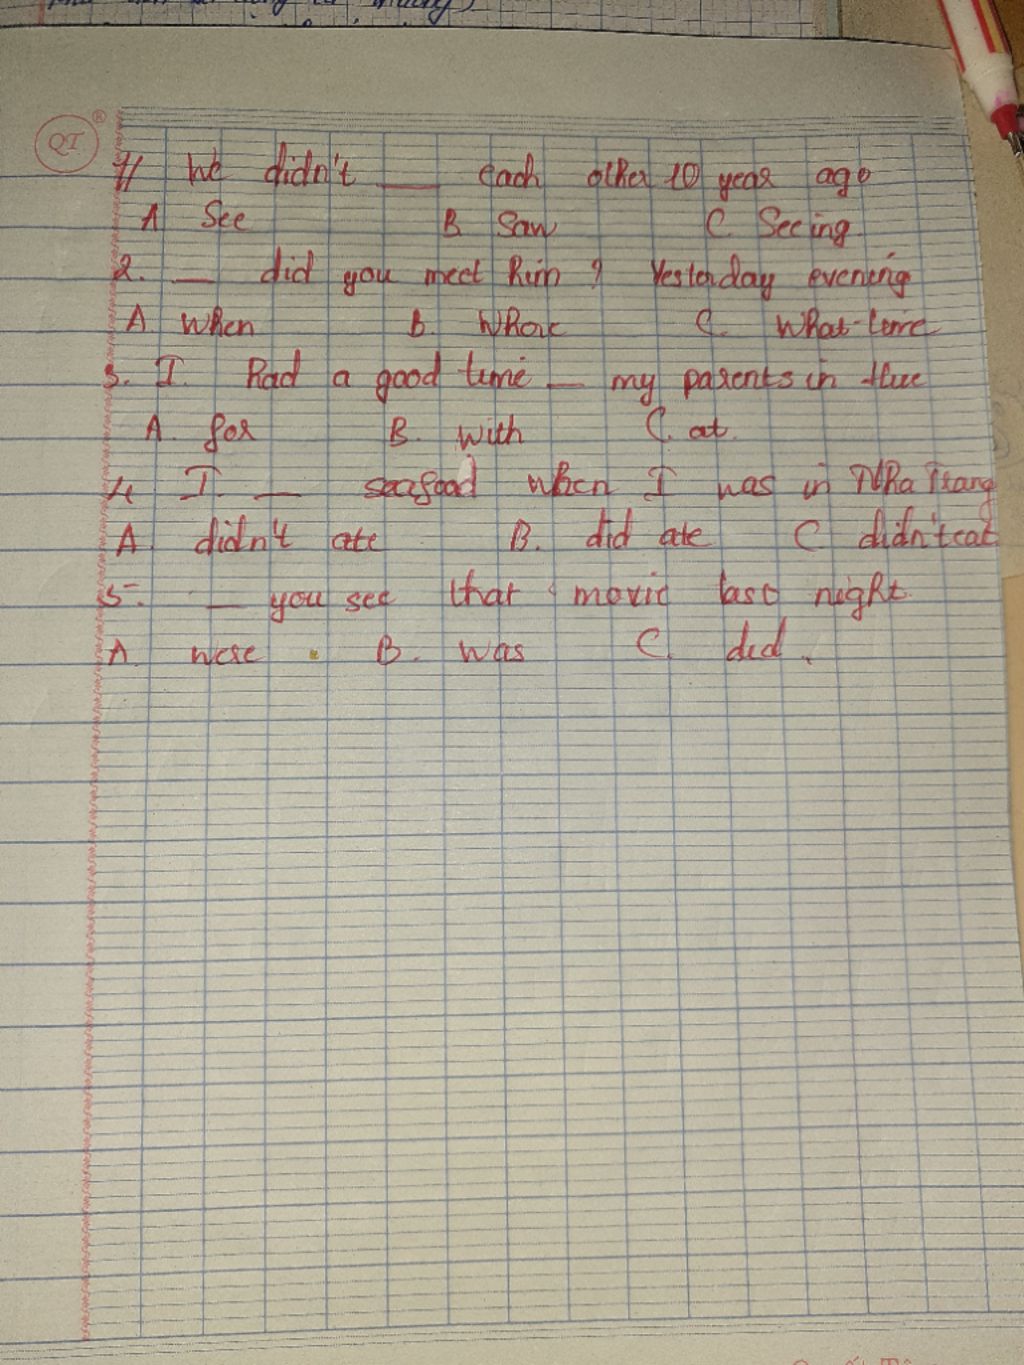 QT ®
1/ We didn't ___ each other 10 year ago
A See B Saw C. Seeing
2. ___ did you meet him? Yesterday evening
A. When B. Where C. What time
3. I had a good time ___ my parents in Hue
A. for B. with C. at
4. I ___ seafood when I was in Nha Trang
A didn't ate B. did ate C didn't eat
5. ___ you see that movie last night.
A. were B. was C. did.